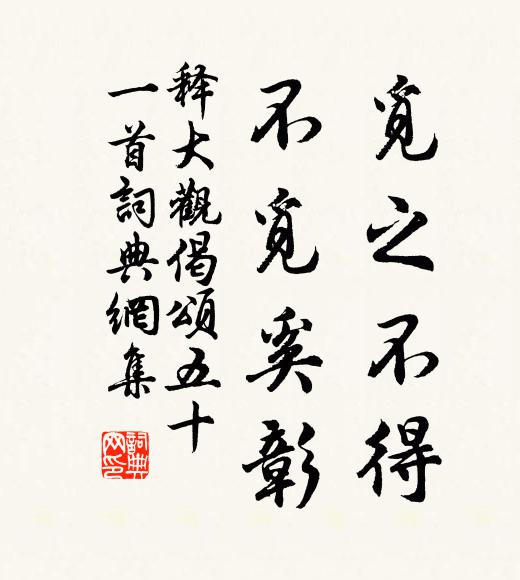 觅之不得
不觅奚彰
释大觀偈頌五十
一首詞典網集
詞典
网印